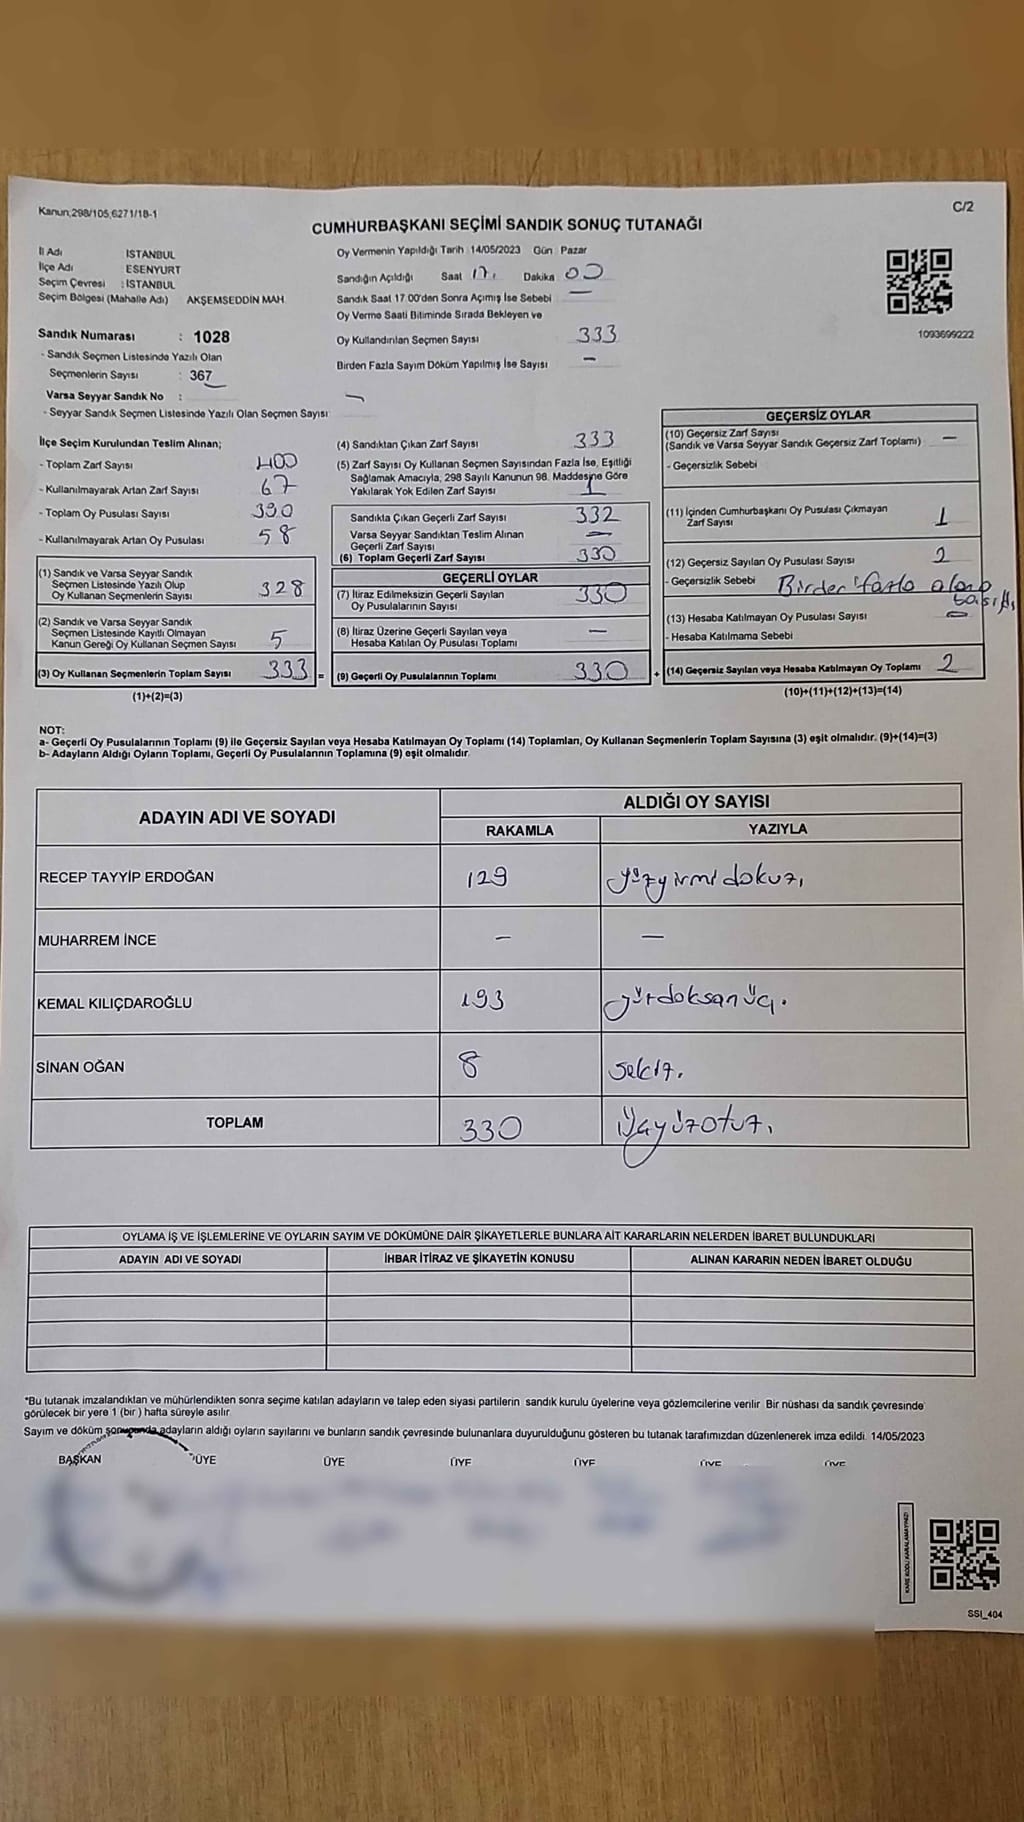 Kanun;298/105,6271/18-1
C/2
CUMHURBAŞKANI SEÇİMİ SANDIK SONUÇ TUTANAĞI
İl Adı İSTANBUL
İlçe Adı ESENYURT
Seçim Çevresi : İSTANBUL
Seçim Bölgesi (Mahalle Adı) AKŞEMSEDDİN MAH.
Sandık Numarası : 1028
- Sandık Seçmen Listesinde Yazılı Olan
Seçmenlerin Sayısı : 367
Varsa Seyyar Sandık No :
- Seyyar Sandık Seçmen Listesinde Yazılı Olan Seçmen Sayısı:
Oy Vermenin Yapıldığı Tarih 14/05/2023 Gün Pazar
Sandığın Açıldığı Saat 17. Dakika 00
Sandık Saat 17.00'den Sonra Açımış İse Sebebi —
Oy Verme Saati Bitiminde Sırada Bekleyen ve
Oy Kullandırılan Seçmen Sayısı 333
Birden Fazla Sayım Döküm Yapılmış İse Sayısı —
1093699222
İlçe Seçim Kurulundan Teslim Alınan;
- Toplam Zarf Sayısı 400
- Kullanılmayarak Artan Zarf Sayısı 67
- Toplam Oy Pusulası Sayısı 390
- Kullanılmayarak Artan Oy Pusulası 58
(1) Sandık ve Varsa Seyyar Sandık
Seçmen Listesinde Yazılı Olup
Oy Kullanan Seçmenlerin Sayısı 328
(2) Sandık ve Varsa Seyyar Sandık
Seçmen Listesinde Kayıtlı Olmayan
Kanun Gereği Oy Kullanan Seçmen Sayısı 5
(3) Oy Kullanan Seçmenlerin Toplam Sayısı 333 =
(1)+(2)=(3)
(4) Sandıktan Çıkan Zarf Sayısı 333
(5) Zarf Sayısı Oy Kullanan Seçmen Sayısından Fazla İse, Eşitliği
Sağlamak Amacıyla, 298 Sayılı Kanunun 98. Maddesine Göre
Yakılarak Yok Edilen Zarf Sayısı 1
Sandıkta Çıkan Geçerli Zarf Sayısı 332
Varsa Seyyar Sandıktan Teslim Alınan
Geçerli Zarf Sayısı —
(6) Toplam Geçerli Zarf Sayısı 330
GEÇERLİ OYLAR
(7) İtiraz Edilmeksizin Geçerli Sayılan
Oy Pusulalarının Sayısı 330
(8) İtiraz Üzerine Geçerli Sayılan veya
Hesaba Katılan Oy Pusulası Toplamı —
(9) Geçerli Oy Pusulalarının Toplamı 330 +
GEÇERSİZ OYLAR
(10) Geçersiz Zarf Sayısı
(Sandık ve Varsa Seyyar Sandık Geçersiz Zarf Toplamı) —
- Geçersizlik Sebebi
(11) İçinden Cumhurbaşkanı Oy Pusulası Çıkmayan
Zarf Sayısı 1
(12) Geçersiz Sayılan Oy Pusulası Sayısı 2
- Geçersizlik Sebebi Birden fazla alana
(13) Hesaba Katılmayan Oy Pusulası Sayısı —
- Hesaba Katılmama Sebebi
(14) Geçersiz Sayılan veya Hesaba Katılmayan Oy Toplamı 2
(10)+(11)+(12)+(13)=(14)
NOT:
a- Geçerli Oy Pusulalarının Toplamı (9) ile Geçersiz Sayılan veya Hesaba Katılmayan Oy Toplamı (14) Toplamları, Oy Kullanan Seçmenlerin Toplam Sayısına (3) eşit olmalıdır. (9)+(14)=(3)
b- Adayların Aldığı Oyların Toplamı, Geçerli Oy Pusulalarının Toplamına (9) eşit olmalıdır.
ADAYIN ADI VE SOYADI ALDIĞI OY SAYISI
RAKAMLA YAZIYLA
RECEP TAYYİP ERDOĞAN 129 yüzyirmidokuz,
MUHARREM İNCE — —
KEMAL KILIÇDAROĞLU 193 yüzdoksanüç.
SİNAN OĞAN 8 sekiz.
TOPLAM 330 Üçyüzotuz,
OYLAMA İŞ VE İŞLEMLERİNE VE OYLARIN SAYIM VE DÖKÜMÜNE DAİR ŞİKAYETLERLE BUNLARA AİT KARARLARIN NELERDEN İBARET BULUNDUKLARI
ADAYIN ADI VE SOYADI İHBAR İTİRAZ VE ŞİKAYETİN KONUSU ALINAN KARARIN NEDEN İBARET OLDUĞU
*Bu tutanak imzalandıktan ve mühürlendikten sonra seçime katılan adayların ve talep eden siyasi partilerin sandık kurulu üyelerine veya gözlemcilerine verilir. Bir nüshası da sandık çevresinde
görülecek bir yere 1 (bir ) hafta süreyle asılır.
Sayım ve döküm sonucunda adayların aldığı oyların sayılarını ve bunların sandık çevresinde bulunanlara duyurulduğunu gösteren bu tutanak tarafımızdan düzenlenerek imza edildi. 14/05/2023
BAŞKAN ÜYE ÜYE ÜYE ÜYE ÜYE ÜYE
SSI_404